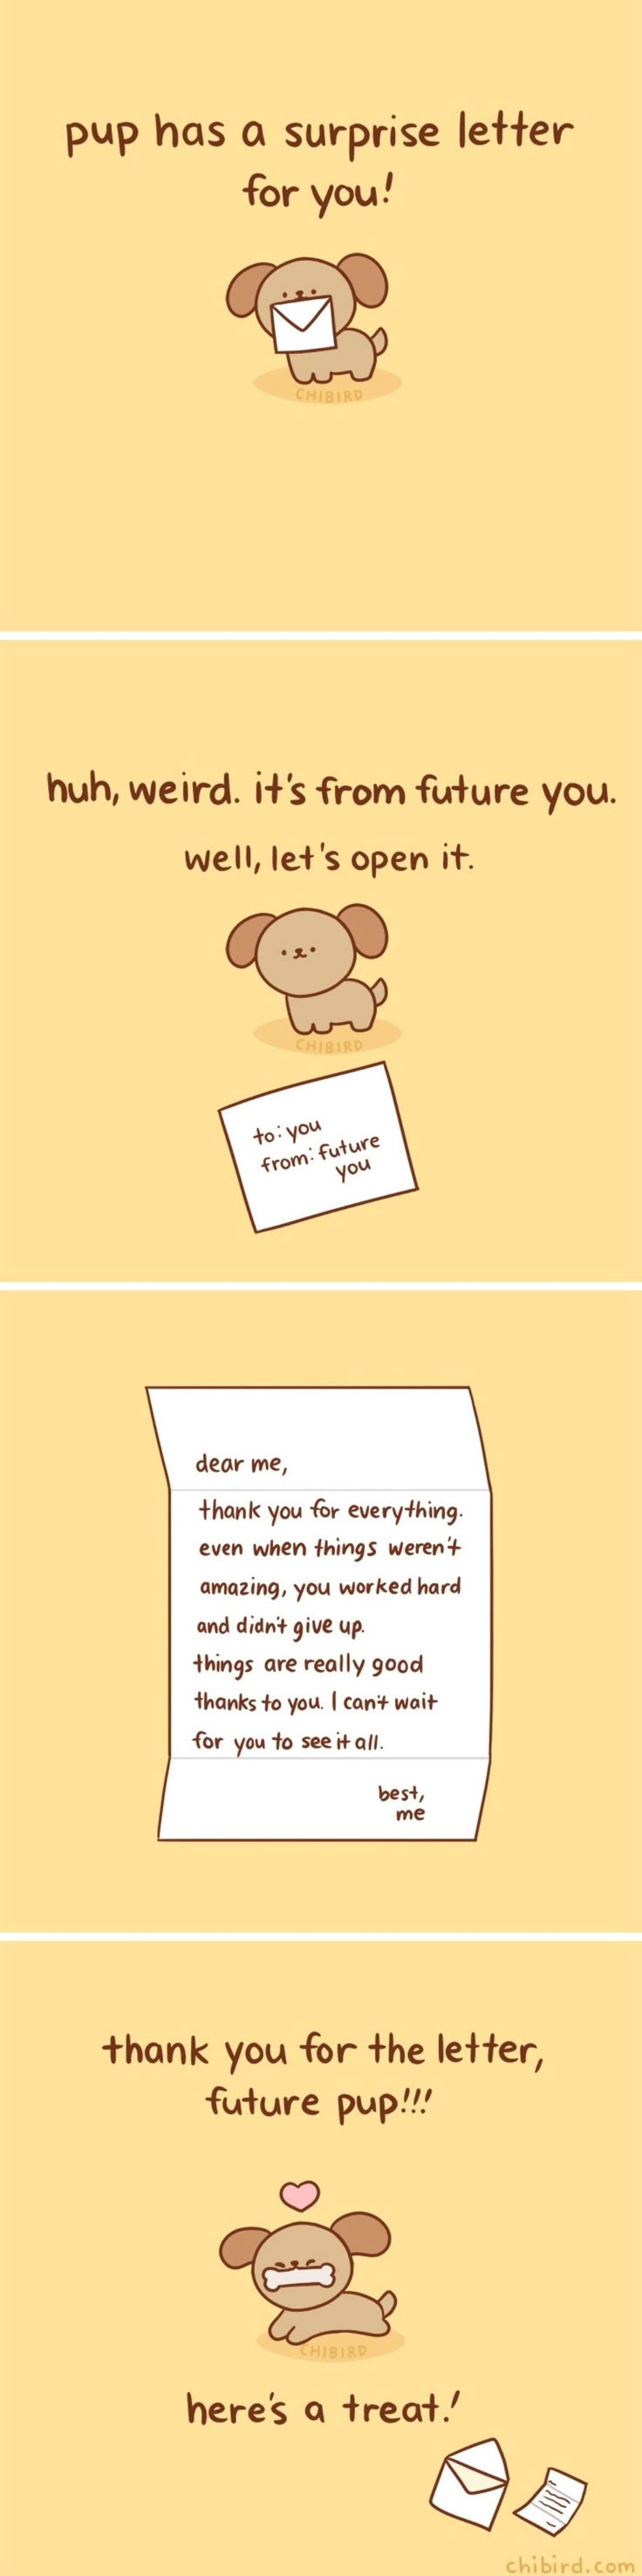 pup has a surprise letter
for you!
CHIBIRD
huh, weird. it's from future you.
well, let's open it.
CHIBIRD
to: you
from: future
you
dear me,
thank you for everything.
even when things weren't
amazing, you worked hard
and didn't give up.
things are really good
thanks to you. I can't wait
for you to see it all.
best,
me
thank you for the letter,
future pup!!!
CHIBIRD
here's a treat!
chibird.com